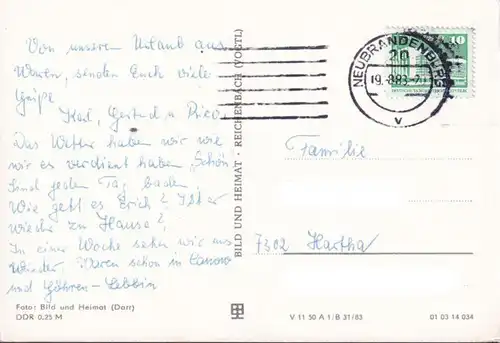 Von unserem Urlaub aus
Waren, senden Euch viele
Grüße
Karl, Gertrud u.
Das Wetter haben wir wie
wir es verdient haben, Schön
Sind jeden Tag baden.
Wie geht es Erich? Ist er
wieder zu Hause?
In einer Woche sehen wir uns
Wieder. Waren schon in Canow
und Göhren-Lebbin
Foto: Bild und Heimat (Darr)
DDR 0,25 M
BILD UND HEIMAT · REICHENBACH (VOGTL)
NEUBRANDENBURG
20
19.-8.83-
V
10
Familie
7302 Hartha
V 11 50 A 1/B 31/83
01 03 14 034